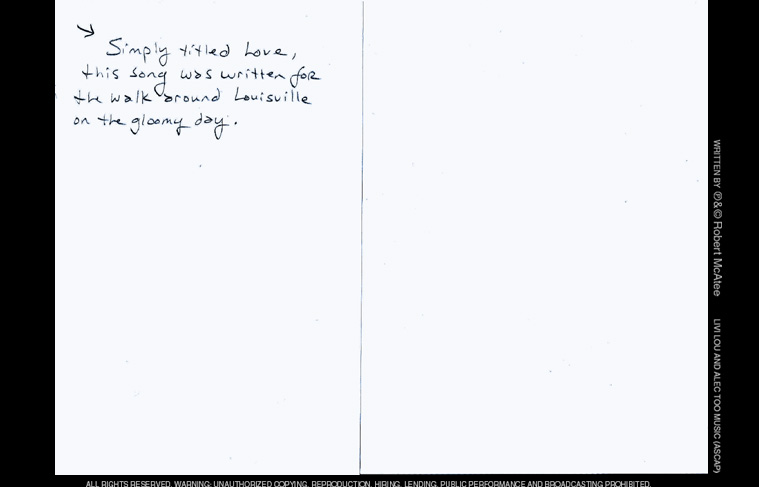 Simply titled Love,
this song was written for
the walk around Louisville
on the gloomy day.
WRITTEN BY ℗&© Robert McAtee
LIVI LOU AND ALEC TOO MUSIC (ASCAP)
ALL RIGHTS RESERVED. WARNING: UNAUTHORIZED COPYING, REPRODUCTION, HIRING, LENDING, PUBLIC PERFORMANCE AND BROADCASTING PROHIBITED.